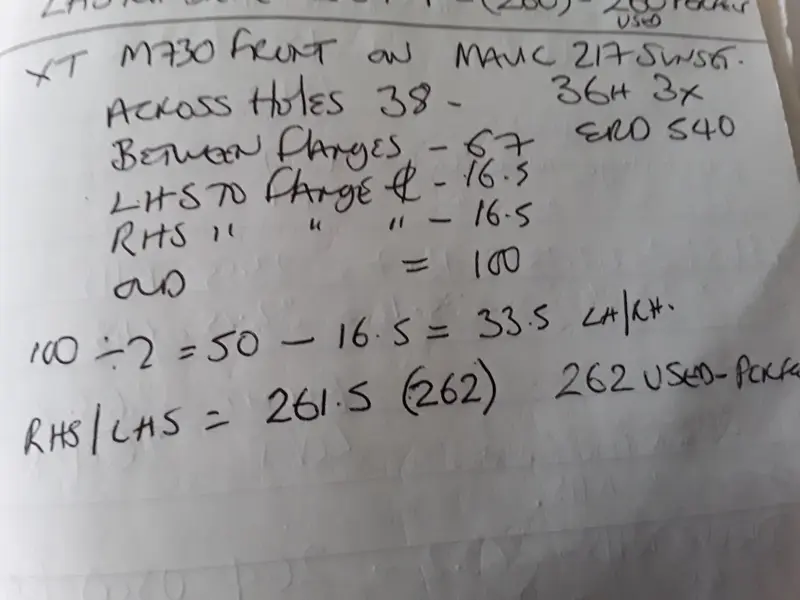 (260) - 260 PERFECT
USED
XT M730 FRONT ON MAVIC 217 SUNSET.
ACROSS HOLES 38 - 36H 3X
BETWEEN FLANGES - 67 ERD 540
LHS TO FLANGE ₵ - 16.5
RHS " " " - 16.5
OLD = 100
100 ÷ 2 = 50 - 16.5 = 33.5 LH/RH.
RHS/LHS = 261.5 (262) 262 USED - PERFE